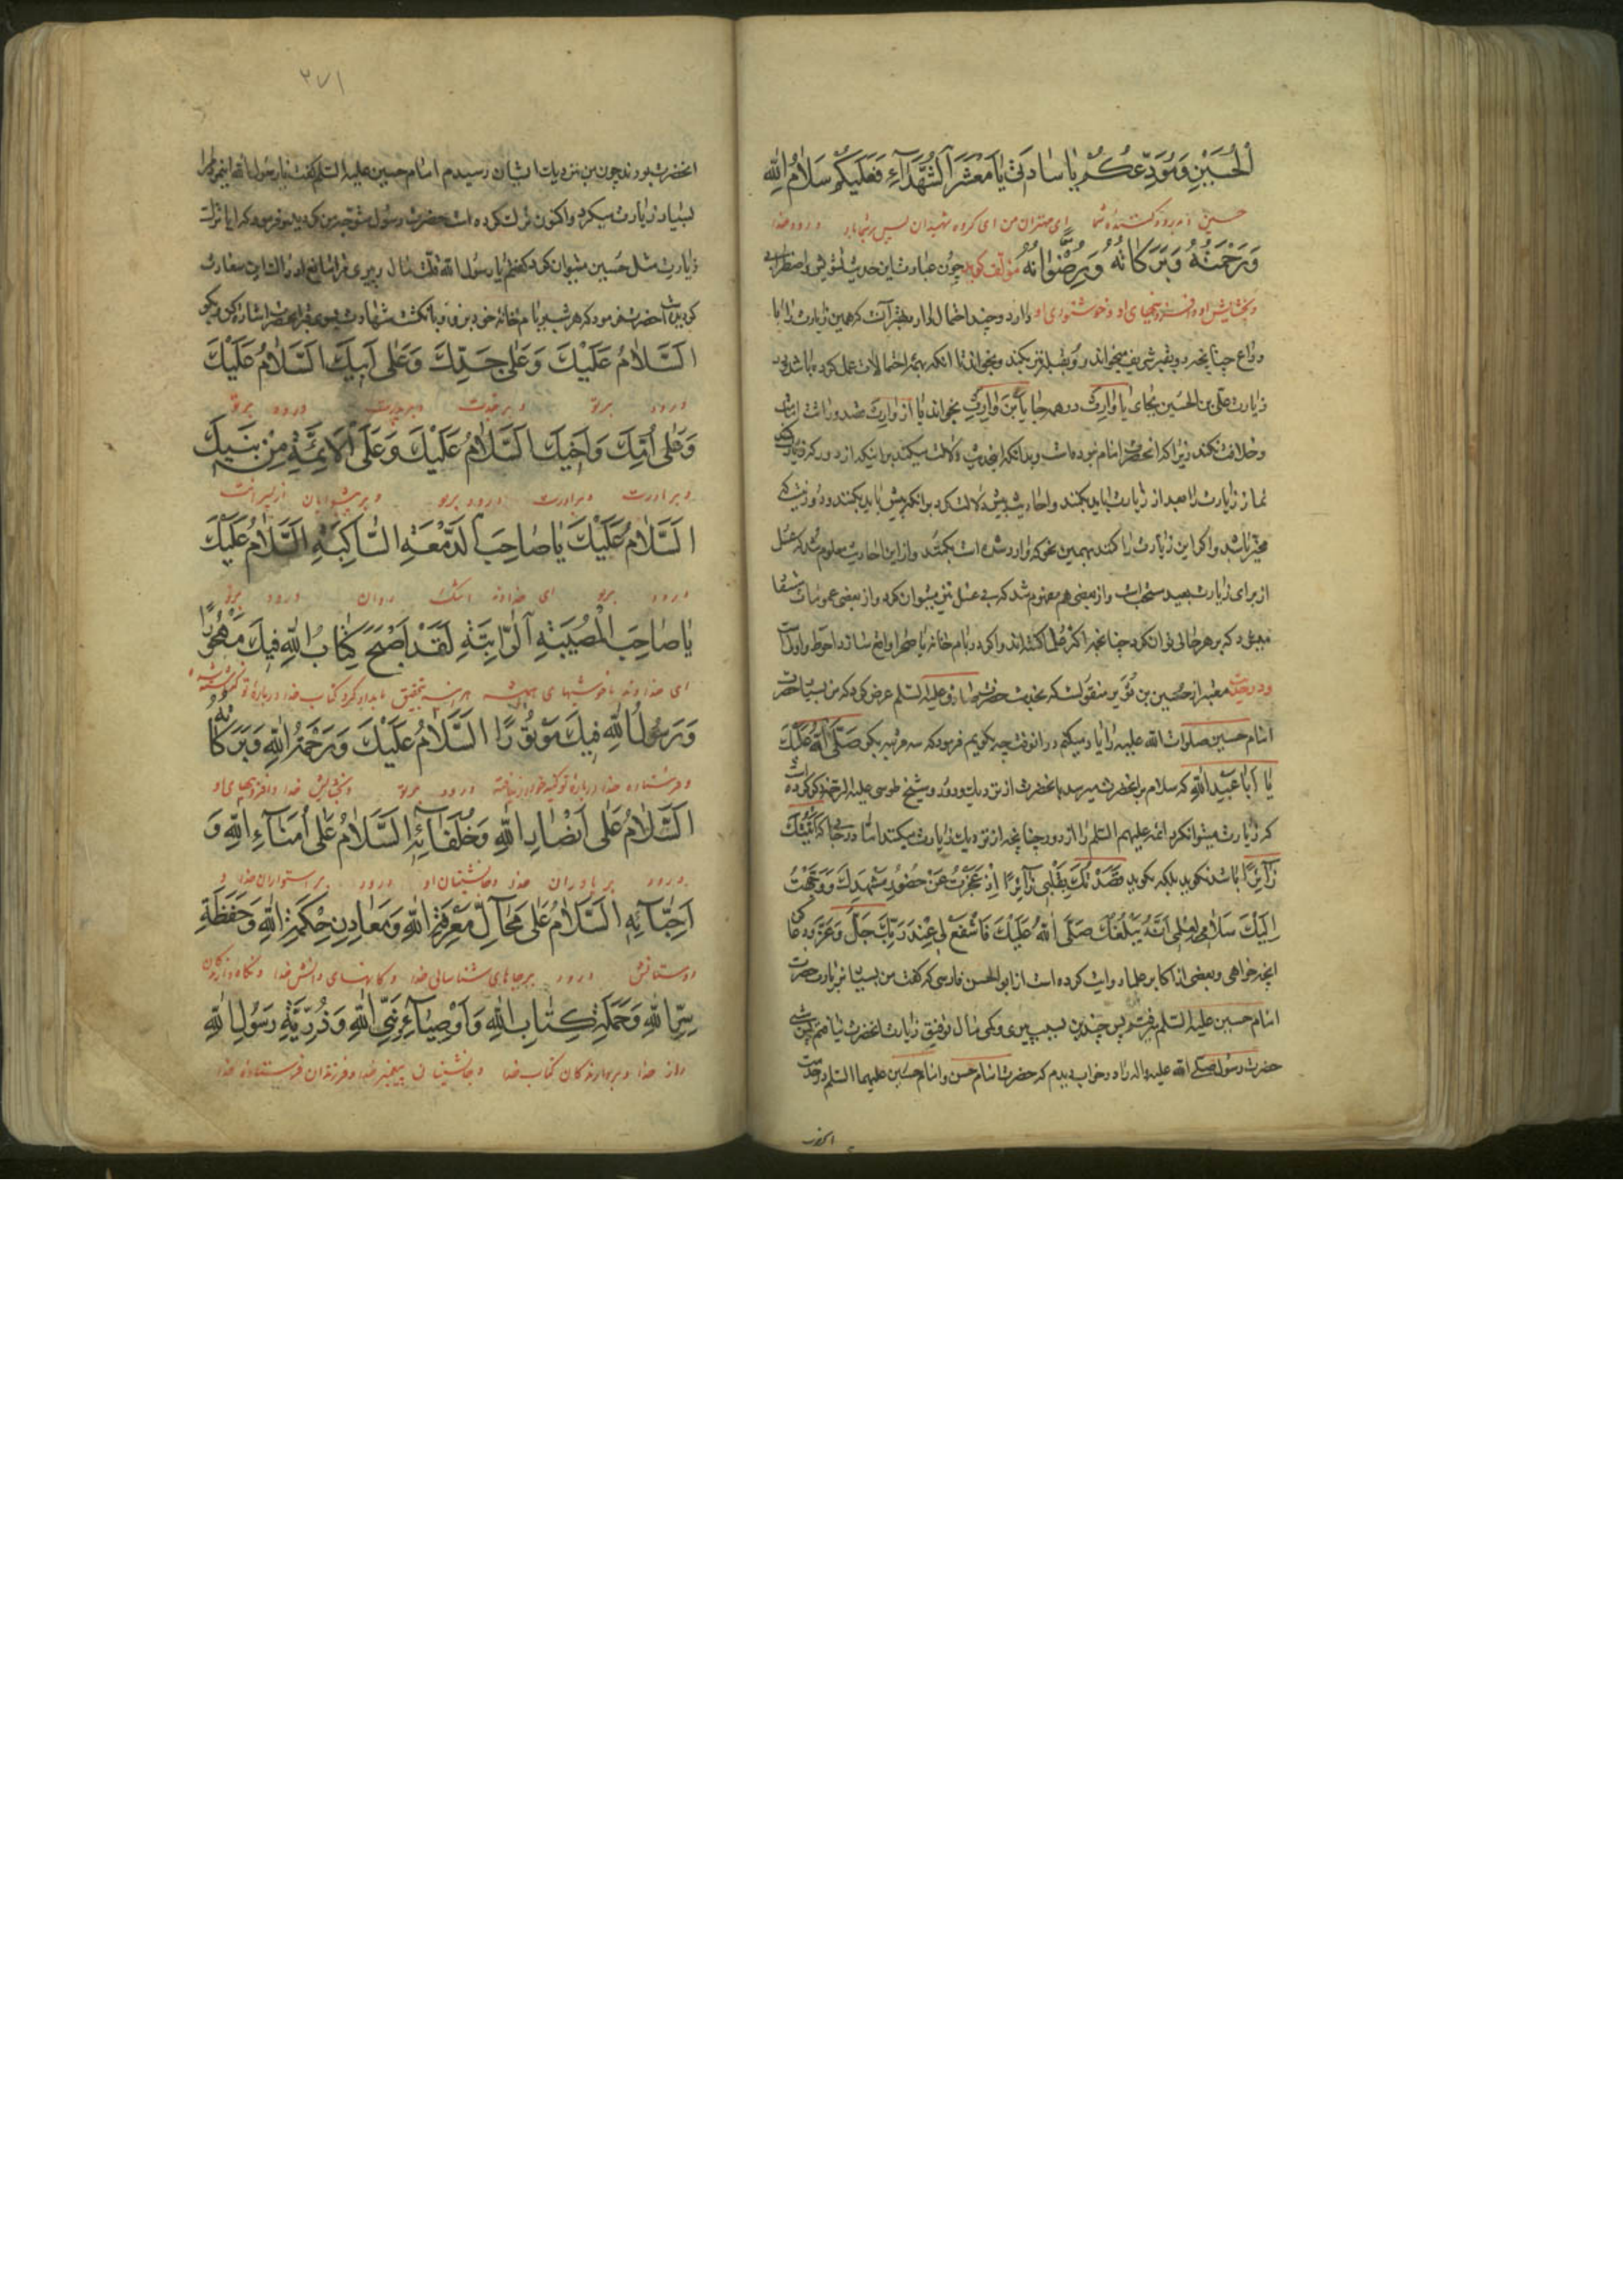 الْحُسَيْنِ وَمُوَدِّعُكُمْ يَا سَادَتِي يَا مَعْشَرَ الشُّهَدَآءِ فَعَلَيْكُمْ سَلَامُ اللهِ
ای مهتران من ای گروه شهیدان پس برشما باد درود خدا
وَرَحْمَتُهُ وَبَرَكَاتُهُ وَرِضْوَانُهُ مؤلف گوید چون عبارت این حدیث تشویش و اضطرابی
وبخشایش او وافزونیهای او وخوشنودی او دارد و چند احتمال دارد بهتر آنست که همین زیارت را با
وداع چنانچه رو بقبر شریف میخواند رو بقبله نیز بکند و بخواند تا آنکه بهمه احتمالات عمل کرده باشد و در
زیارت علی بن الحسین بجای یا وارث در همه جا یا بن وارث بخواند
نماز زیارت را بعد از زیارت باید بکند و احادیث پیش دلالت کرد بر آنکه پیش باید بکند و دور نیست که
مخیر باشد و اگر این زیارت را کند بهمین نحو که وارد شده است بکند و از این احادیث معلوم شد که غسل
از برای زیارت بعید سنت است و از بعضی هم مفهوم شد که بی غسل نیز میتوان کرد و از بعضی عمومات مستفاد
میشود که بر هر جائی توان کرد چنانچه اکثر علما گفته‌اند و اگر در بام خانه یا صحرا واقع سازد احوط و اولی است
ودر حدیث معتبر از حسین بن ثویر منقولست که بخدمت حضرت صادق علیه السلم عرض کرد که من بسیار حضرت
امام حسین صلوات الله علیه را یاد میکنم در آنوقت چه بگویم فرمود که سه مرتبه بگو صَلَّى اللهُ عَلَيْكَ
يَا اَبَا عَبْدِ اللهِ که سلام بر آنحضرت میرسد بآنحضرت از نزدیک و دور و شیخ طوسی علیه الرحمة ذکر کرده است
که زیارت میتوان کرد ائمه علیهم السلم را از دور چنانچه از نزدیک زیارت میکنند اما در جای که اَتَيْتُكَ
زَآئِرًا باشد نگوید بلکه بگوید قَصَدْتُكَ بِقَلْبِي زَآئِرًا اِذْ عَجَزْتُ عَنْ حُضُورِ مَشْهَدِكَ وَوَجَّهْتُ
اِلَيْكَ سَلَامِي لِعِلْمِي اَنَّهُ يَبْلُغُكَ صَلَّى اللهُ عَلَيْكَ فَاشْفَعْ لِي عِنْدَ رَبِّكَ جَلَّ وَعَزَّ ودعا کن
آنچه خواهی و بعضی از اکابر علما روایت کرده است از ابو الحسن فارسی که گفت من بسیار بزیارت حضرت
امام حسین علیه السلم میرفتم پس چندین بسبب پیری و کمی مال توفیق زیارت آنحضرت نیافتم پس شبی
حضرت رسول صلی الله علیه واله را در خواب دیدم که حضرت امام حسن و امام حسین علیهما السلم در خدمت
آنحضرت
۲۷۱
آنحضرت بودند چون من بنزدیک ایشان رسیدم امام حسین علیه السلم گفت یا رسول الله این مرد مرا
بسیار زیارت میکرد و اکنون ترک کرده است حضرت رسول متوجه من گردید و فرمود که آیا ترک
زیارت مثل حسین میتوان کرد گفتم یا رسول الله قلت مال و پیری مرا مانع از دریافت این سعادت
گردید آنحضرت فرمود که هر شب بر بام خانه خود برو و بانگشت شهادت بسوی قبر آنحضرت اشاره کن و بگو
اَلسَّلَامُ عَلَيْكَ وَعَلَى جَدِّكَ وَعَلَى اَبِيكَ اَلسَّلَامُ عَلَيْكَ
درود برتو وبرجدت وبرپدرت درود برتو
وَعَلَى اُمِّكَ وَاَخِيكَ اَلسَّلَامُ عَلَيْكَ وَعَلَى الْاَئِمَّةِ مِنْ بَنِيكَ
وبرمادرت وبرادرت درود برتو وبرپیشوایان از پسرانت
اَلسَّلَامُ عَلَيْكَ يَا صَاحِبَ الدَّمْعَةِ السَّاكِبَةِ اَلسَّلَامُ عَلَيْكَ
درود برتو ای خداوند اشک روان درود برتو
يَا صَاحِبَ الْمُصِيبَةِ الرَّاتِبَةِ لَقَدْ اَصْبَحَ كِتَابُ اللهِ فِيكَ مَهْجُورًا
وَرَسُولُ اللهِ فِيكَ مَوْتُورًا اَلسَّلَامُ عَلَيْكَ وَرَحْمَةُ اللهِ وَبَرَكَاتُهُ
درود برتو وبخشایش خدا وافزونیهای او
اَلسَّلَامُ عَلَى اَنْصَارِ اللهِ وَخُلَفَآئِهِ اَلسَّلَامُ عَلَى اُمَنَآءِ اللهِ وَ
درود بر یاوران خدا وجانشینان او درود بر استواران خدا و
اَحِبَّآئِهِ اَلسَّلَامُ عَلَى مَحَآلِّ مَعْرِفَةِ اللهِ وَمَعَادِنِ حِكْمَةِ اللهِ وَحَفَظَةِ
دوستانش درود برجاهای شناسائی خدا وکانهای دانش خدا ونگاه دارندگان
سِرِّ اللهِ وَحَمَلَةِ كِتَابِ اللهِ وَاَوْصِيَآءِ نَبِيِّ اللهِ وَذُرِّيَّةِ رَسُولِ اللهِ
راز خدا وبردارندگان کتاب خدا وجانشینان پیغمبر خدا وفرزندان فرستاده خدا